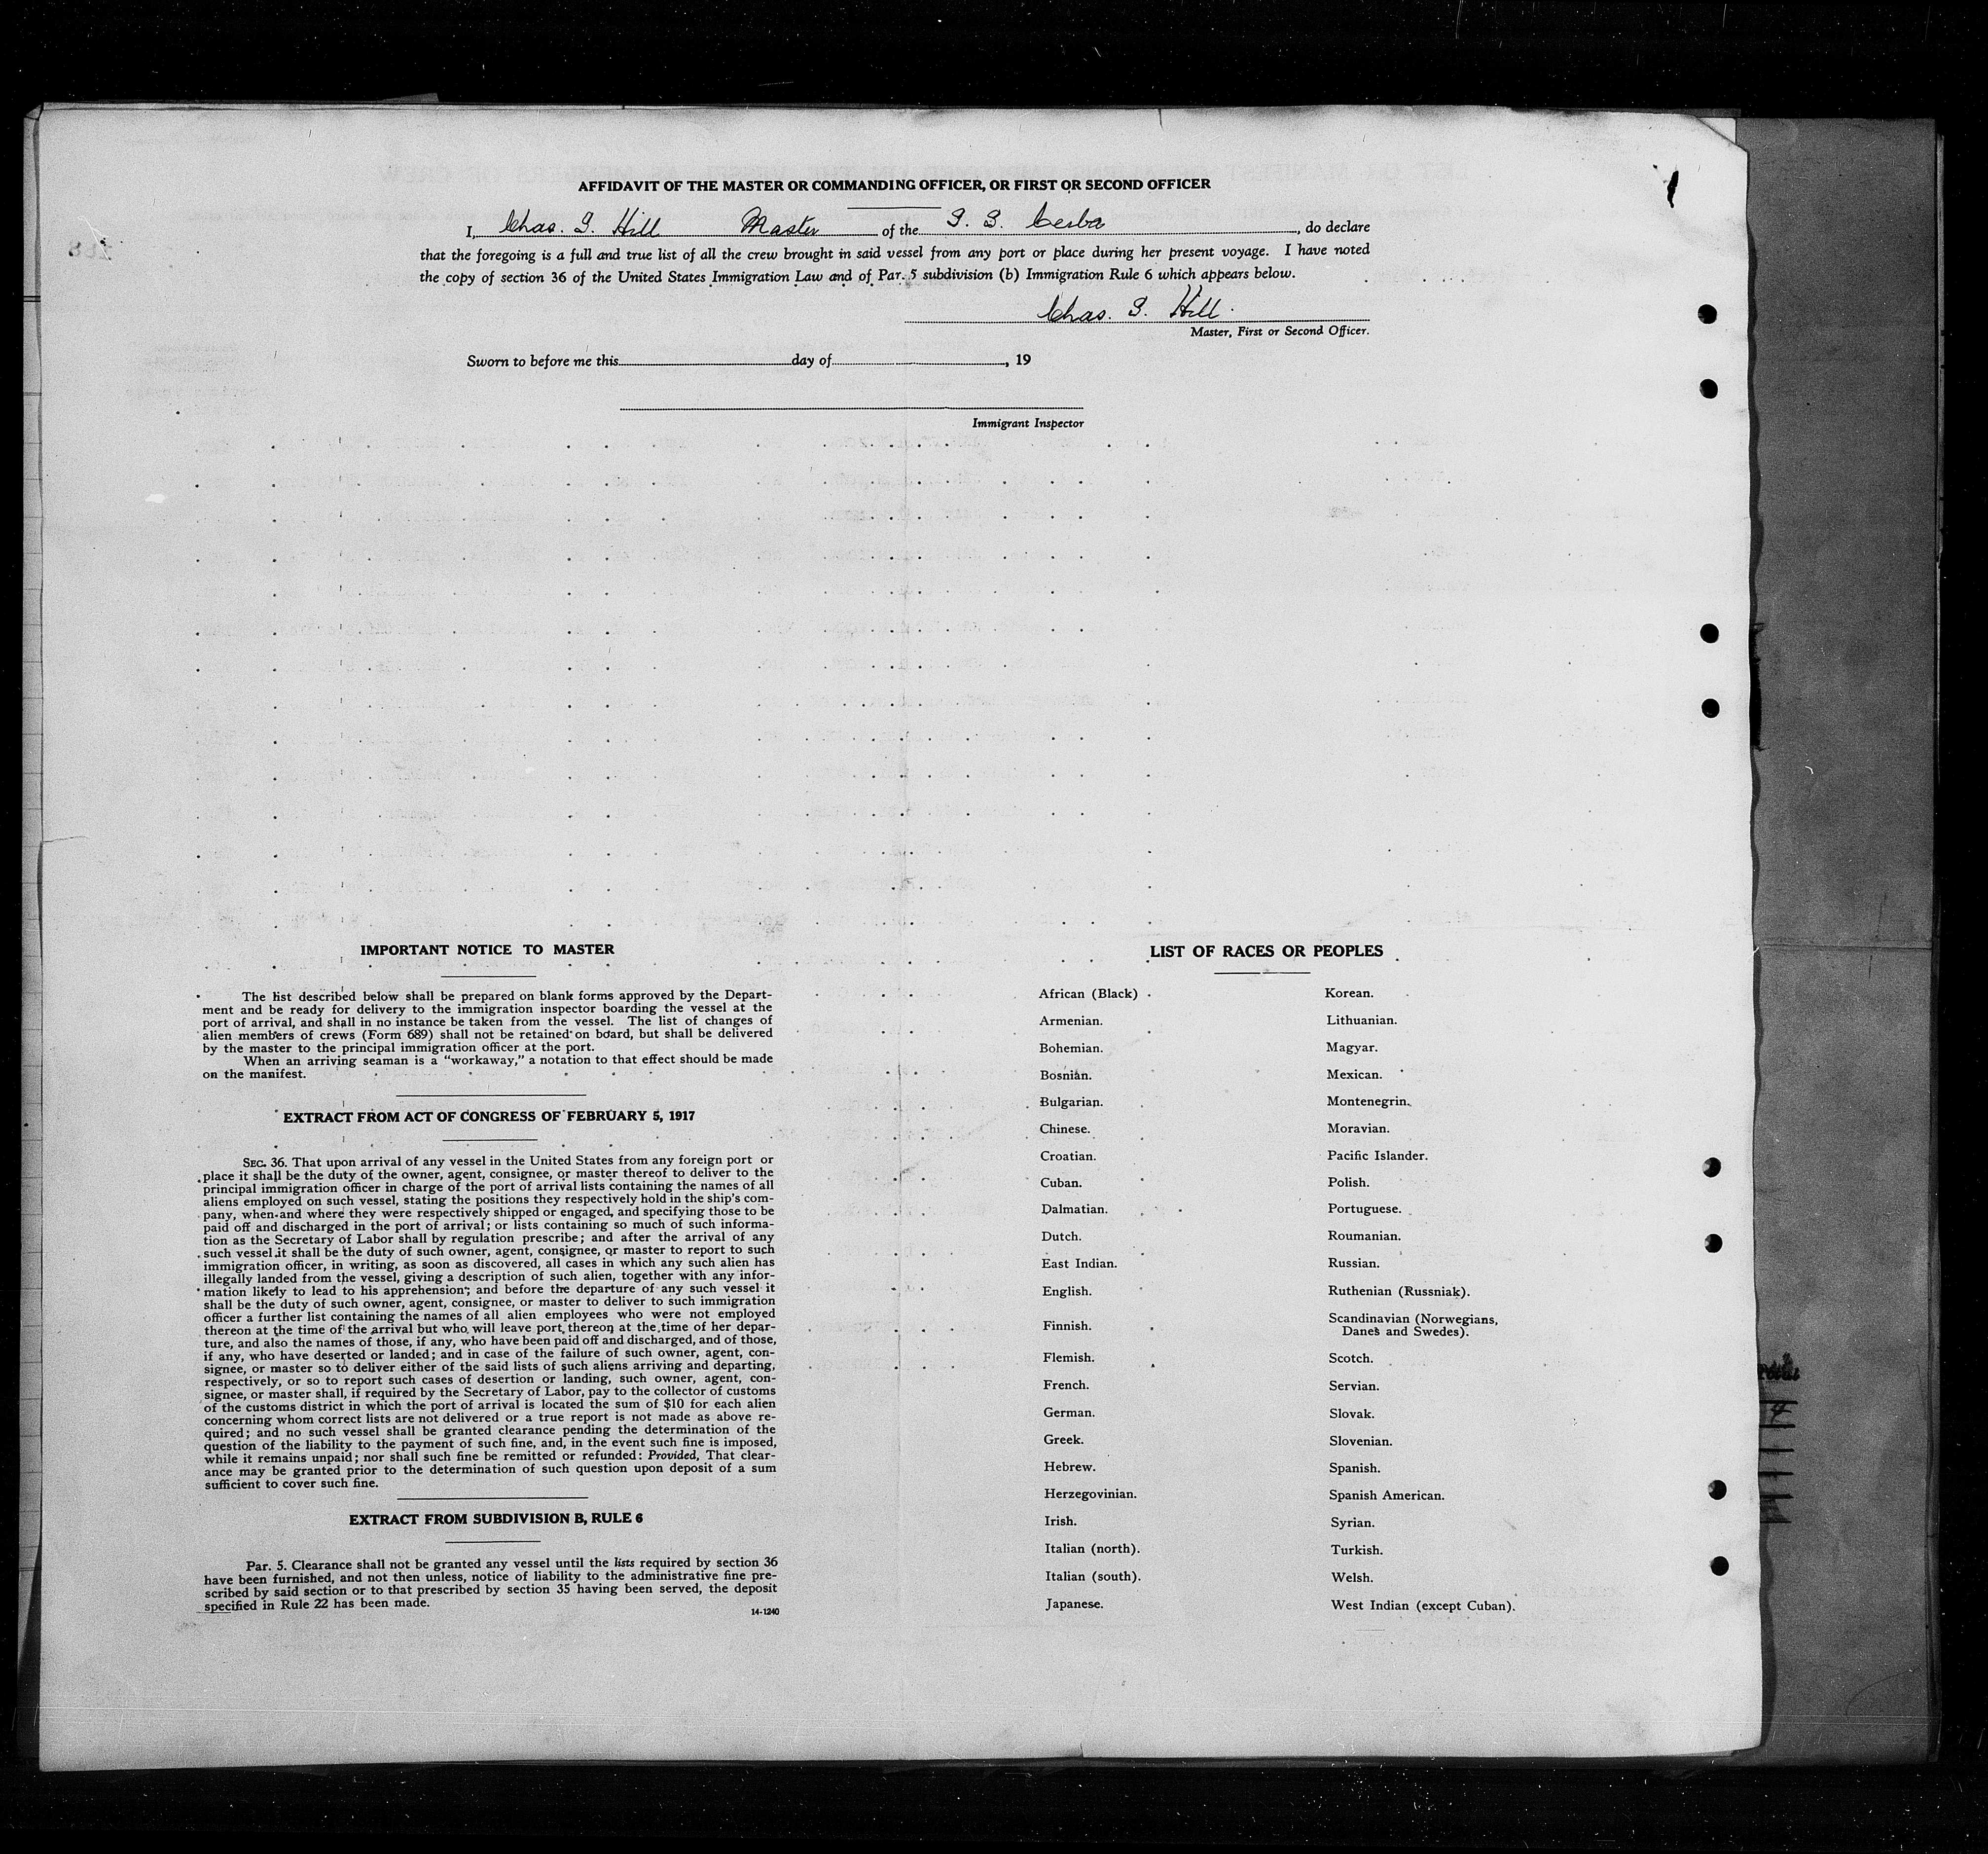 AFFIDAVIT OF THE MASTER OR COMMANDING OFFICER, OR FIRST OR SECOND OFFICER
I, Chas. G. Hill Master of the S. S. Ceiba, do declare
that the foregoing is a full and true list of all the crew brought in said vessel from any port or place during her present voyage. I have noted
the copy of section 36 of the United States Immigration Law and of Par. 5 subdivision (b) Immigration Rule 6 which appears below.
Chas. G. Hill.
Master, First or Second Officer.
Sworn to before me this day of , 19
Immigrant Inspector
IMPORTANT NOTICE TO MASTER
The list described below shall be prepared on blank forms approved by the Depart-
ment and be ready for delivery to the immigration inspector boarding the vessel at the
port of arrival, and shall in no instance be taken from the vessel. The list of changes of
alien members of crews (Form 689) shall not be retained on board, but shall be delivered
by the master to the principal immigration officer at the port.
When an arriving seaman is a "workaway," a notation to that effect should be made
on the manifest.
EXTRACT FROM ACT OF CONGRESS OF FEBRUARY 5, 1917
SEC. 36. That upon arrival of any vessel in the United States from any foreign port or
place it shall be the duty of the owner, agent, consignee, or master thereof to deliver to the
principal immigration officer in charge of the port of arrival lists containing the names of all
aliens employed on such vessel, stating the positions they respectively hold in the ship's com-
pany, when and where they were respectively shipped or engaged, and specifying those to be
paid off and discharged in the port of arrival; or lists containing so much of such informa-
tion as the Secretary of Labor shall by regulation prescribe; and after the arrival of any
such vessel it shall be the duty of such owner, agent, consignee, or master to report to such
immigration officer, in writing, as soon as discovered, all cases in which any such alien has
illegally landed from the vessel, giving a description of such alien, together with any infor-
mation likely to lead to his apprehension; and before the departure of any such vessel it
shall be the duty of such owner, agent, consignee, or master to deliver to such immigration
officer a further list containing the names of all alien employees who were not employed
thereon at the time of the arrival but who will leave port thereon at the time of her depar-
ture, and also the names of those, if any, who have been paid off and discharged, and of those,
if any, who have deserted or landed; and in case of the failure of such owner, agent, con-
signee, or master so to deliver either of the said lists of such aliens arriving and departing,
respectively, or so to report such cases of desertion or landing, such owner, agent, con-
signee, or master shall, if required by the Secretary of Labor, pay to the collector of customs
of the customs district in which the port of arrival is located the sum of $10 for each alien
concerning whom correct lists are not delivered or a true report is not made as above re-
quired; and no such vessel shall be granted clearance pending the determination of the
question of the liability to the payment of such fine, and, in the event such fine is imposed,
while it remains unpaid; nor shall such fine be remitted or refunded: Provided, That clear-
ance may be granted prior to the determination of such question upon deposit of a sum
sufficient to cover such fine.
EXTRACT FROM SUBDIVISION B, RULE 6
Par. 5. Clearance shall not be granted any vessel until the lists required by section 36
have been furnished, and not then unless, notice of liability to the administrative fine pre-
scribed by said section or to that prescribed by section 35 having been served, the deposit
specified in Rule 22 has been made.
14-1240
LIST OF RACES OR PEOPLES
African (Black)
Armenian.
Bohemian.
Bosnian.
Bulgarian.
Chinese.
Croatian.
Cuban.
Dalmatian.
Dutch.
East Indian.
English.
Finnish.
Flemish.
French.
German.
Greek.
Hebrew.
Herzegovinian.
Irish.
Italian (north).
Italian (south).
Japanese.
Korean.
Lithuanian.
Magyar.
Mexican.
Montenegrin.
Moravian.
Pacific Islander.
Polish.
Portuguese.
Roumanian.
Russian.
Ruthenian (Russniak).
Scandinavian (Norwegians,
Danes and Swedes).
Scotch.
Servian.
Slovak.
Slovenian.
Spanish.
Spanish American.
Syrian.
Turkish.
Welsh.
West Indian (except Cuban).